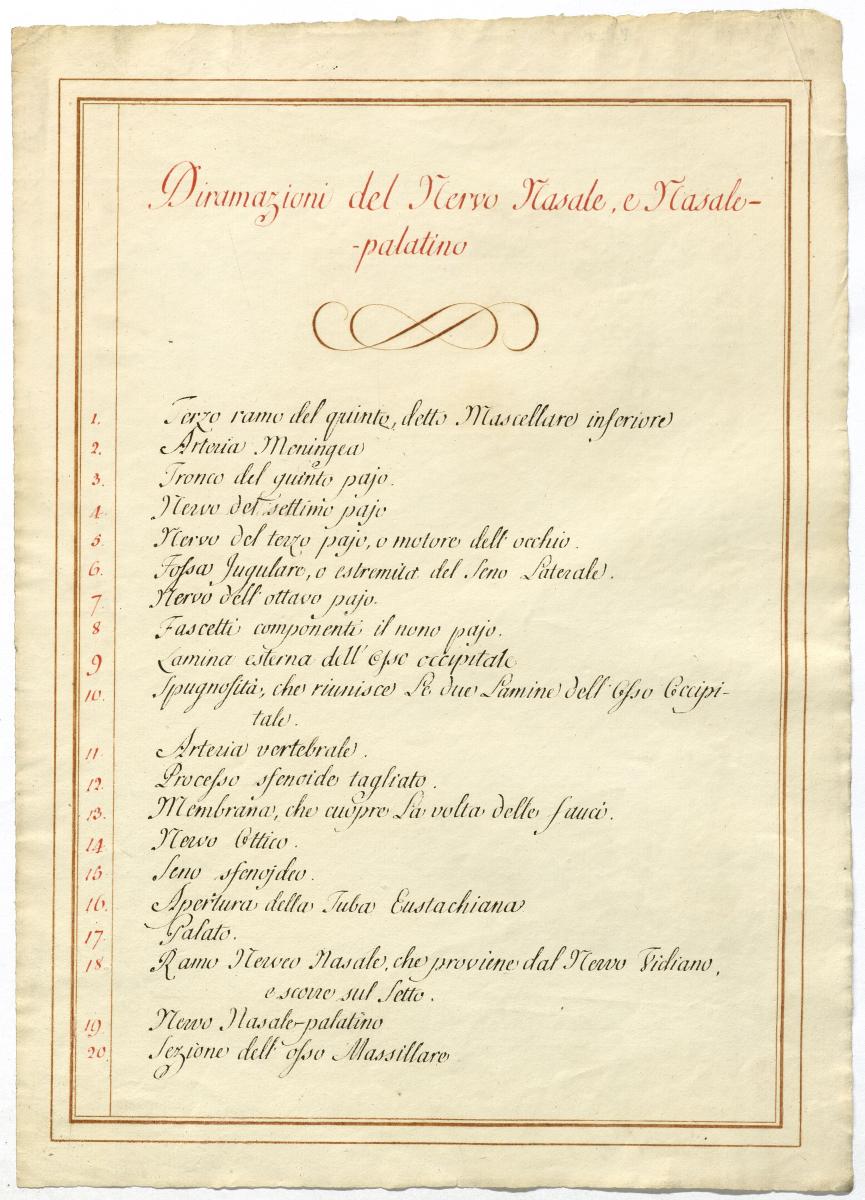 Diramazioni del Nervo Nasale, e Nasale-
-palatino
1. Terzo ramo del quinto, detto Mascellare inferiore
2. Arteria Meningea
3. Tronco del quinto pajo.
4. Nervo del settimo pajo
5. Nervo del terzo pajo, o motore dell'occhio.
6. Fossa Jugulare, o estremità del Seno Laterale.
7. Nervo dell'ottavo pajo.
8 Fascetti componenti il nono pajo.
9 Lamina esterna dell'Osso occipitale
10. Spugnosità, che riunisce Le due Lamine dell'Osso Occipi-
tale.
11. Arteria vertebrale.
12. Processo sfenoide tagliato.
13. Membrana, che cuopre La volta delle fauci.
14 Nervo Ottico.
15 Seno sfenojdeo.
16. Apertura della Tuba Eustachiana
17. Palato.
18 Ramo Nerveo Nasale, che proviene dal Nervo Vidiano,
e scorre sul Setto.
19. Nervo Nasale-palatino
20. Sezione dell'osso Massillare